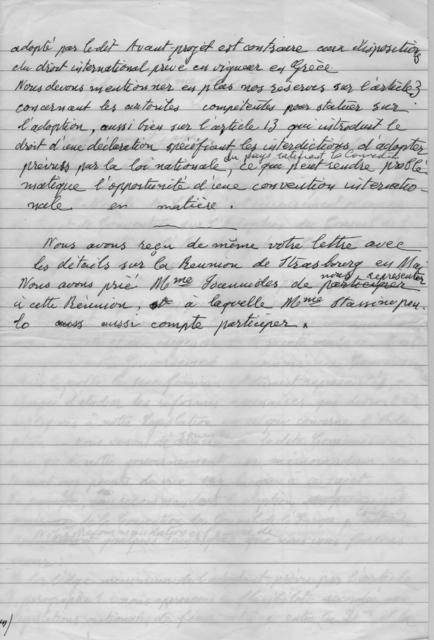 adopté par le dit Avant-projet est contraire aux dispositions
du droit international privé en vigueur en Grèce
Nous devons mentionner en plus nos réserves sur l'article 3
concernant les autorités compétentes pour statuer sur
l'adoption, aussi bien sur l'article 13 qui introduit le
droit d'une déclaration spécifiant les interdictions, d'adopter
du pays ratifiant la
prévues par la loi nationale, ce que peut rendre problé
matique l'opportunité d'une convention internatio-
nale en matière.
Nous avons reçu de même votre lettre avec
les détails sur la Réunion de Strasbourg en Mai
nous représenter
Nous avons prié Mme Ioannides de participer
à cette Réunion, à laquelle Mme Stassinopou-
lo aussi compte participer.